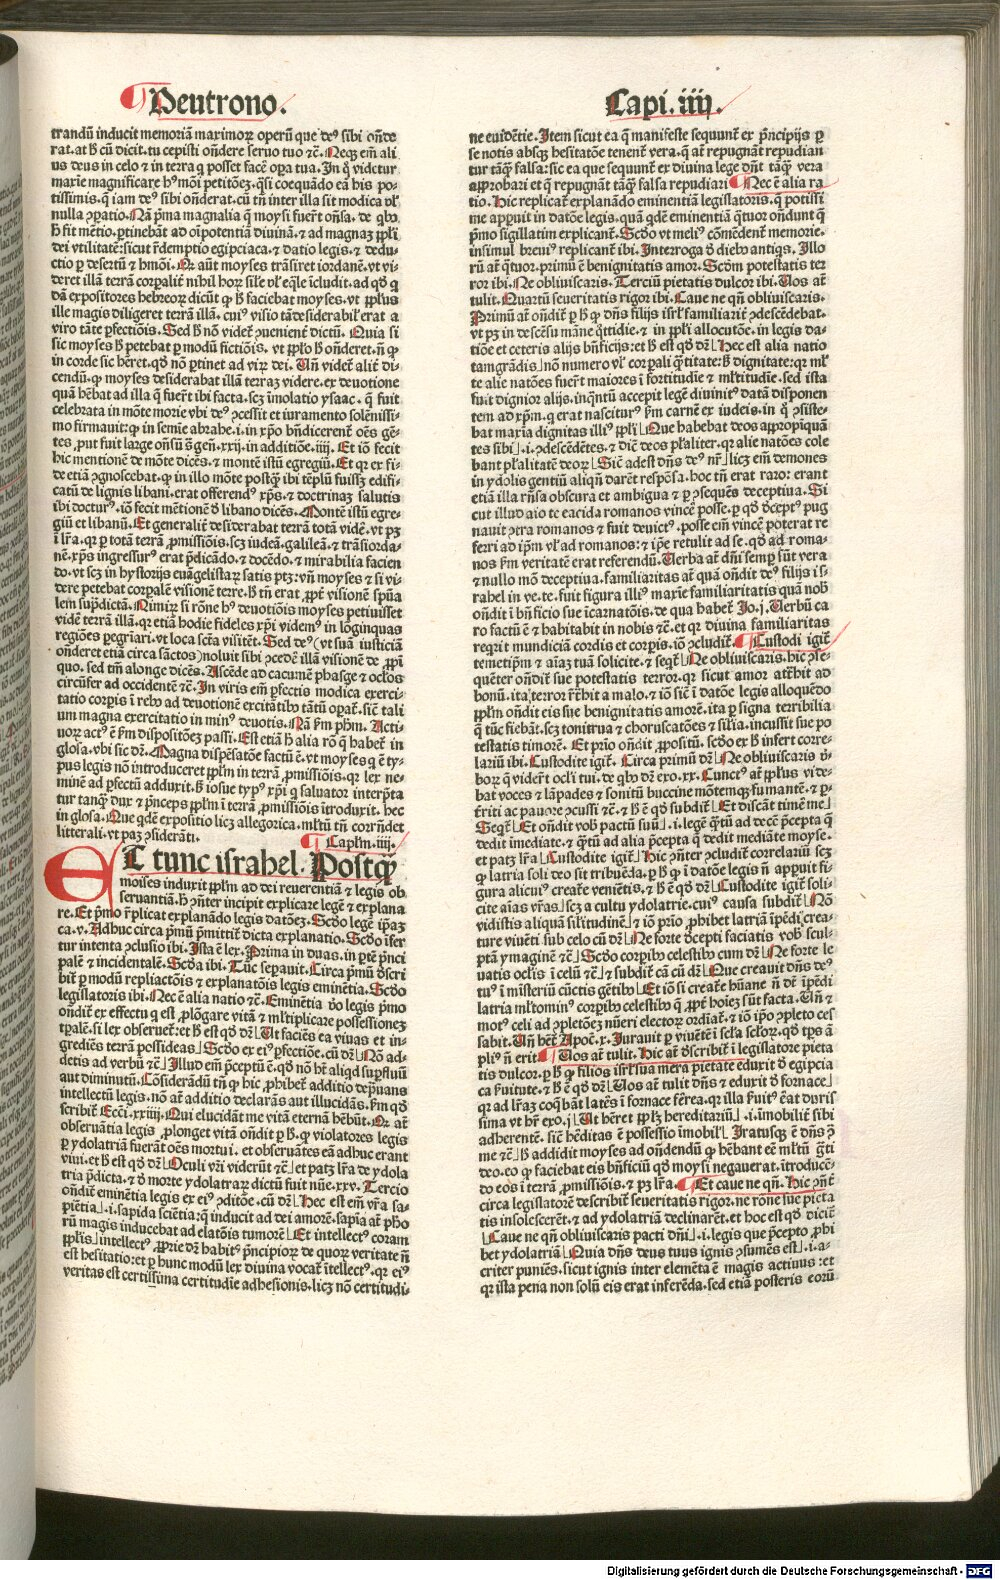 Deutrono.
Capi. iiij.
trandū inducit memoriā maximoꝝ operū que deꝰ sibi oñde
rat. at ħ cū dicit. tu cepisti oñdere seruo tuo ⁊c̄. Neqꝫ em̄ ali
us deus in celo ⁊ in terra q̄ posset facē oꝑa tua. In q̊ videtur
tissimis. q̄ iam deꝰ sibi onderat. cū tn̄ inter illa sit modica vl̓
dei vtilitatē: sicut r̄demptio egipciaca. ⁊ datio legis. ⁊ dedu
ctio ꝑ desertū ⁊ hmōi. Qꝛ aūt moyses trāsiret iordanē. vt vi
dā expositores hebreoꝝ dicūt ꝙ ħ faciebat moyses. vt ꝓplus
ille magis diligeret terrā illā. cuiꝰ visio tā desiderabil̓ erat a
viro tāte ꝑfectiōis. Sed ħ nō videt̄ ꝯuenient̄ dictū. Quia si
sic moyses ħ petebat ꝑ modū fictiōis. vt ꝓplo ħ oñderet. n̄ ꝙ
in corde sic hēret. qđ nō ꝑtinet ad viꝝ dei. Un̄ videt̄ alit̄ di
cendū. ꝙ moyses desiderabat illā terraꝫ videre. ex deuotione
quā hēbat ad illa q̄ fuer̄t ibi facta. scꝫ īmolatio ysaac. q̄ fuit
celebrata in mōte morie vbi deꝰ ꝯcessit et iuramento solēnissi
mo firmauit: ꝙ in semīe abrahe .i. in xp̄o bn̄dicerent̄ oēs gē
tes, ꝓut fuit large onsū s̄ gen̄. xxij. in additiōe. iiij. Et iō fecit
hic mentionē de mōte dicēs. ⁊ montē istū egregiū. Et qꝛ ex fi
de etiā ꝯgnoscebat. ꝙ in illo mōte postꝙ̄ ibi tēplū fuissꝫ edifi
catū de lignis libani. erat offerendꝰ xp̄s. ⁊ doctrinaꝫ salutis
ibi docturꝰ. iō fecit mētionē ď libano dicēs. Montē istū egre
giū et libanū. Et generalit̄ desiderabat terrā totā vidē. vt pꝫ
ī lr̄a. qꝛ ꝑ totā terrā ꝓmissiōis. scꝫ iudeā. galileā. ⁊ trāsiorda
nē. xp̄s ingressurꝰ erat p̄dicādo. ⁊ docēdo. ⁊ mirabilia facien
do. vt scꝫ in hystorijs euāgelistaꝝ satis ptꝫ: vn̄ moyses ⁊ si vi
dere petebat corꝑalē visionē terre. ħ tn̄ erat ꝓpt̄ visionē sp̄ua
lem supͣdictā. Nimiꝝ si rōne hꝰ deuotiōis moyses petiuisset
vidē terrā illā. qꝛ etiā hodie fideles xp̄i videmꝰ in lōginquas
regiōes ꝑegr̄iari. vt loca sct̄a visitēt. Sed deꝰ (vt suā iusticiā
onderet etiā circa sāctos) noluit sibi ꝯcedē illā visionē de ꝓpī
quo. sed tn̄ alonge dicēs. Ascēde ad cacumē phasge ⁊ oc̄los
circūfer ad occidentē ⁊c̄. In viris em̄ ꝑfectis modica exerci
tatio corpis ī rebꝰ ad deuotionē excitātibꝰ tātū opat̄. sic̄ tali
um magna exercitatio in minꝰ deuotis. Nā ẜm ph̄m. Acti
uoꝝ actꝰ ē ẜm dispositōeꝫ passi. Est etiā ħ alia rō q̄ habet̄ in
glosa. vbi sic dr̄. Magna dispēsatōe factū ē. vt moyses q̄ ē ty
pus legis nō introduceret ꝓplm̄ in terrā ꝓmissiōis. qꝛ lex ne
minē ad ꝑfectū adduxit. ß iosue typꝰ xp̄i q̄ saluator interp̄ta
tur tanqͣ dux ⁊ p̄nceps ꝓplm̄ ī terrā ꝓmissiōis ītroduxit. hec
in glosa. Que qdē expositio licꝫ allegorica. ml̓tū tn̄ corrn̄det
litterali. vt patꝫ ꝯsiderāti.
Caplm̄. iiij.
Et tunc israhel. Postꝙ̄
moises induxit ꝓplm̄ ad dei reuerentiā ⁊ legis ob
seruantiā. ħ ꝯn̄ter incipit explicare legē ⁊ explana
re. Et pͥmo r̄plicat explanādo legis datōeꝫ. Scďo legē ip̄aꝫ
ca. v. Adhuc circa pͥmū p̄mittit̄ dicta explanatio. Scďo īfer
tur intenta ꝯclusio ibi. Ista ē lex. Prima in duas. in ꝑte pͥnci
palē ⁊ incidentalē. Scďa ibi. Tūc seꝑauit. Circa pͥmū ďscri
bit̄ ꝑ modū repliactōis ⁊ explanatōis legis eminētia. Scďo
legislatoris ibi. Nec ē alia natio ⁊c̄. Eminētia v̊o legis pͥmo
ondit̄ ex effectu q̄ est, ꝓlōgare vitā ⁊ ml̓tiplicare possessiōeꝫ
tꝑalē. si lex obseruet̄: et ħ est qđ dr̄ Ut faciēs ea viuas et in
grediēs terrā possideas Scďo ex eiꝰ ꝑfectiōe. cū dr̄ Nō ad
detis ad verbū ⁊c̄ Illud em̄ p̄ceptū ē. qđ nō hꝫ aliqđ supfluū
aut diminutū. Cōsiderādū tn̄ ꝙ hic ꝓhibet̄ additio dep̄uans
intellectū legis. nō at̄ additio declarās aut illucidās. ẜm qđ
scribit̄ Ecci. xxiiij. Qui elucidāt me vitā eternā hēbūt. Qꝛ at̄
obseruātia legis ꝓlonget vitā ondit ꝑ ħ. ꝙ violatores legis
ꝑ ydolatriā fuerāt oēs mortui. et obseruātes eā adhuc erant
viui. et ħ est qđ dr̄ Oculi vr̄i viderūt ⁊c̄ et patꝫ lr̄a de ydola
tria p̄dicta. ⁊ ď morte ydolatraꝝ dictū fuit nūe. xxv. Tercio
ondit̄ eminētia legis ex eiꝰ ꝯditōe. cū dr̄ Hec est em̄ vr̄a sa
piētia .i. sapida sciētia: q̄ inducit ad dei amorē. sapīa at̄ pho
rū magis inducebat ad elatōis tumorē Et intellectꝰ coram
ꝓplis intellectꝰ ꝓprie dr̄ habitꝰ pͥncipioꝝ de quoꝝ veritate n̄
est hesitatio: et ꝑ hunc modū lex diuina vocat̄ ītellectꝰ. qꝛ eiꝰ
veritas est certissima certitudīe adhesionis. licꝫ nō certitudi
ne euidētie. Item sicut ea q̄ manifeste sequunt̄ ex pͥncipijs ꝑ
se notis absqꝫ hesitatōe tenent̄ vera. q̄ at̄ repugnāt repudian
tur tāqͣ falsa: sic ea que sequunt̄ ex diuina lege dn̄t tāqͣ vera
approbari et q̄ repugnāt tāqͣ falsa repudiari Nec ē alia na
tio. Hic replicat̄ explanādo eminentiā legislatoris. q̄ potissi
me apꝑuit in datōe legis. quā qdē eminentiā q̄tuor ondunt q̄
pͥmo sigillatim explicant̄. Scďo vt meliꝰ cōmēdent̄ memorie.
insimul breuiꝰ replicant̄ ibi. Interroga ď diebꝰ antiqͥs. Illo
rū at̄ q̄tuor. primū ē benignitatis amor. Scďm potestatis ter
ror ibi. Ne obliuiscaris. Terciū pietatis dulcor ibi. Uos at̄
tulit. Quartū seueritatis rigor ibi. Caue ne qn̄ obliuiscaris.
Primū at̄ ondit̄ ꝑ ħ ꝙ dn̄s filijs isrl̓ familiarit̄ ꝯdescēdebat.
vt pꝫ in descēsu māne q̄ttidie. ⁊ in ꝓpli allocutōe. in legis da
tiōe et ceteris alijs bn̄ficijs: et ħ est qđ dr̄ Nec est alia natio
tam grādis nō numero vl̓ corꝑali q̄titate: ß dignitate: qꝛ ml̓
te alie natōes fuer̄t maiores ī fortitudīe ⁊ ml̓titudīe. sed ista
fuit dignior alijs. inq̄ntū accepit legē diuinitꝰ datā disponen
tem ad xp̄m. q̄ erat nasciturꝰ ẜm carnē ex iudeis. in q̊ ꝯsiste
bat maxīa dignitas illiꝰ ꝓpli Que habebat deos appropiquā
tes sibi .i. ꝯdescēdētes. ⁊ dicit̄ deos pl̓aliter. qꝛ alie natōes cole
bant pl̓alitatē deoꝝ Sic̄ adest dn̄s deꝰ nr̄ licꝫ em̄ demones
in ydolis gentiū aliqn̄ darēt respōsa. hoc tn̄ erat raro: erant
etiā illa rn̄sa obscura et ambigua ⁊ ꝑ ꝯsequēs deceptiua. Si
cut illud aio te eacida romanos vincē posse. ꝑ qđ ďceptꝰ pug
nauit ꝯtra romanos ⁊ fuit deuictꝰ. posse em̄ vincē poterat re
ferri ad ip̄m vl̓ ad romanos: ⁊ ip̄e retulit ad se. qđ ad roma
nos ẜm veritatē erat referendū. Uerba at̄ dn̄i semꝑ sūt vera
⁊ nullo mō deceptiua. familiaritas at̄ quā ondit deꝰ filijs is
rahel in ve. te. fuit figura illiꝰ maxīe familiaritatis quā nob̄
ondit ī bn̄ficio sue īcarnatōis. de qua habet̄ Jo. j. Uerbū ca
ro factū ē ⁊ habitabit in nobis ⁊c̄. et qꝛ diuina familiaritas
reqͥrit mundiciā cordis et corpis. iō ꝯcludit̄. Custodi igit̄
temetip̄m ⁊ aīaꝫ tuā solicite. ⁊ seqt̄ Ne obliuiscaris. hic ꝯse
quēter ondit̄ sue potestatis terror. qꝛ sicut amor att̄hit ad
bonū. ita terror r̄t̄hit a malo. ⁊ iō sic̄ ī datōe legis alloquēdo
ꝓplm̄ ondit eis sue benignitatis amorē. ita ꝑ signa terribilia
q̄ tūc fiebāt. scꝫ tonitrua ⁊ choruscatōes ⁊ sil̓ia. incussit sue po
testatis timorē. Et prīo ondit̄ ꝓpositū. scďo ex ħ infert corre
lariū ibi. Custodite igit̄. Circa primū dr̄ Ne obliuiscaris v̓
boꝝ q̄ vider̄t ocl̓i tui. de qͥbꝰ dr̄ exo. xx. Cunctꝰ at̄ ꝓplus vide
bat voces ⁊ lāpades ⁊ sonitū buccine mōtemqꝫ fumantē. ⁊ ꝑ
t̄riti ac pauore ꝯcussi ⁊c̄. ⁊ ħ ē qđ subdit̄ Et discāt timē me
Seqt̄ Et ondit vob̄ pactū suū .i. legē q̄tū ad decē p̄cepta q̄
dedit īmediate. ⁊ q̄tū ad alia p̄cepta q̄ dedit mediāte moyse.
et patꝫ lr̄a Custodite igit̄ Hic ꝯn̄ter ꝯcludit̄ correlariū scꝫ
ꝙ latria soli deo sit tribuēda. ꝑ ħ ꝙ ī datōe legis n̄ apꝑuit fi
gura alicuiꝰ creat̄e veniētis. ⁊ ħ ē qđ dr̄ Custodite igit̄ soli
cite aīas vr̄as scꝫ a cultu ydolatrie. cuiꝰ causa subdit̄ Nō
vidistis aliquā sil̓itudinē ⁊ iō prīo ꝓhibet latriā īpēdi crea
ture viuēti sub celo cū dr̄ Ne forte ďcepti faciatis vob̄ scul
ptā ymaginē ⁊c̄ Scďo corpibꝰ celestibꝰ cum dr̄ Ne forte le
uatis oc̄lis ī celū ⁊c̄ ⁊ subdit̄ cā cū dr̄ Que creauit dn̄s deꝰ
tuꝰ ī mīsteriū cūctis gētibꝰ Et iō si creat̄e hūane n̄ dꝫ īpēdi
latria ml̓tominꝰ corpibꝰ celestibꝰ q̄ ꝓpt̄ hoīeꝫ sūt facta. Un̄ ⁊
motꝰ celi ad ꝯpletōeꝫ nūeri electoꝝ ordīat̄. ⁊ iō ip̄o ꝯpleto ces
sabit. Un̄ het̄ Apoc̄. x. Iurauit ꝑ viuētē ī secl̓a secl̓oꝝ. qđ tps̄ ā
pliꝰ n̄ erit Uos at̄ tulit. Hic at̄ ďscribit̄ ī legislatore pieta
tis dulcor. ꝑ ħ ꝙ filios isrl̓ sua mera pietate eduxit ď egipcia
ca ẜuitute. ⁊ ħ ē qđ dr̄ Uos at̄ tulit dn̄s ⁊ eduxit ď fornace
qꝛ ad lr̄aꝫ coq̄bāt lat̄es ī fornace fērea. qꝛ illa ẜuitꝰ eāt duris
sima vt hr̄ exo. j Ut hēret ꝓplꝫ hereditariū .i. īmobilit̄ sibi
adherentē. sic̄ hēditas ē possessio īmobil̓ Iratusqꝫ ē dn̄s ꝯ
me ⁊c̄ ħ addidit moyses ad ondendū ꝙ hēbant eē ml̓tū gͣti
deo. eo ꝙ faciebat eis bn̄ficiū qđ moysi negauerat. ītroducē
do eos ī terrā ꝓmissiōis. ⁊ pꝫ lr̄a. Et caue ne qn̄. Hic ꝯn̄t̄
circa legislatorē describit̄ seueritatis rigor. ne rōne sue pieta
tis insolescerēt. ⁊ ad ydolatriā declinarēt. et hoc est qđ dicit̄
Caue ne qn̄ obliuiscaris pacti dn̄i .i. legis que p̄cepto ꝓhi
bet ydolatriā Quia dn̄s deus tuus ignis ꝯsumēs est .i. a
criter puniēs. sicut ignis inter elemēta ē magis actiuus: et
qꝛ ista pena non solū eis erat inferēda. sed etiā posteris eorū
Digitalisierung gefördert durch die Deutsche Forschungsgemeinschaft - DFG